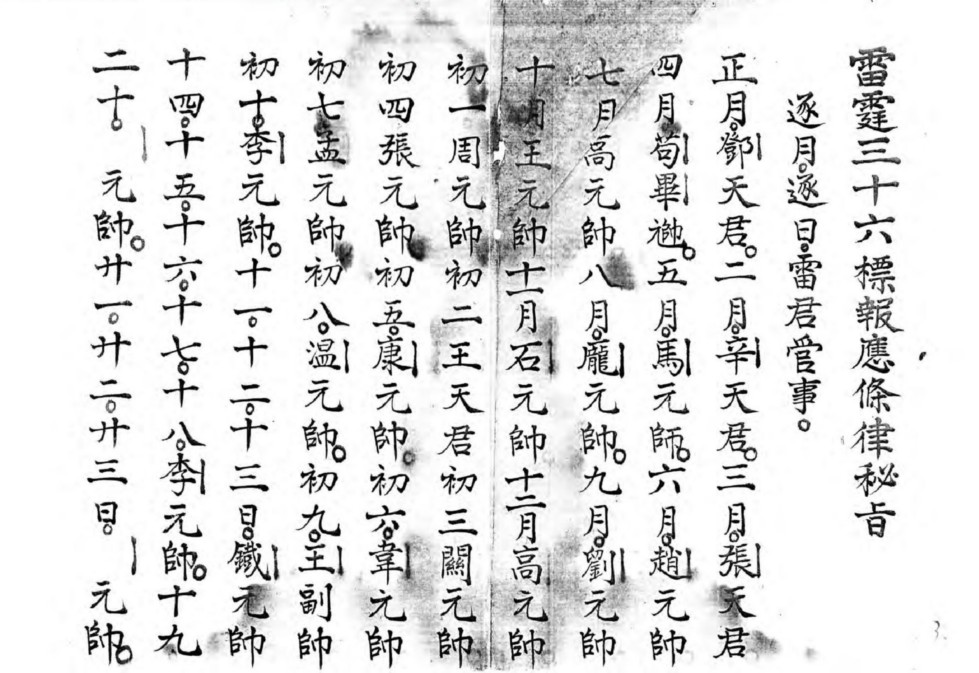 雷霆三十六標報應條律秘旨
逐月。逐日。雷君管事。
正月。鄧天君。二月。辛天君。三月。張天君
四月。苟畢。五月。馬元師。六月。趙元帥
七月高元帥八月。龐元帥。九月。劉元帥
十月王元帥十一月石元帥十二月高元帥
初一周元帥初二王天君初三關元帥
初四張元帥初五。康元帥。初六。韋元帥
初七孟元帥初八。溫元帥。初九。王副帥
初十。李元帥。十一。十二。十三日。鐵元帥
十四。十五。十六。十七。十八。李元帥。十九
二十。元帥。廿一。廿二。廿三日。元帥。
3.